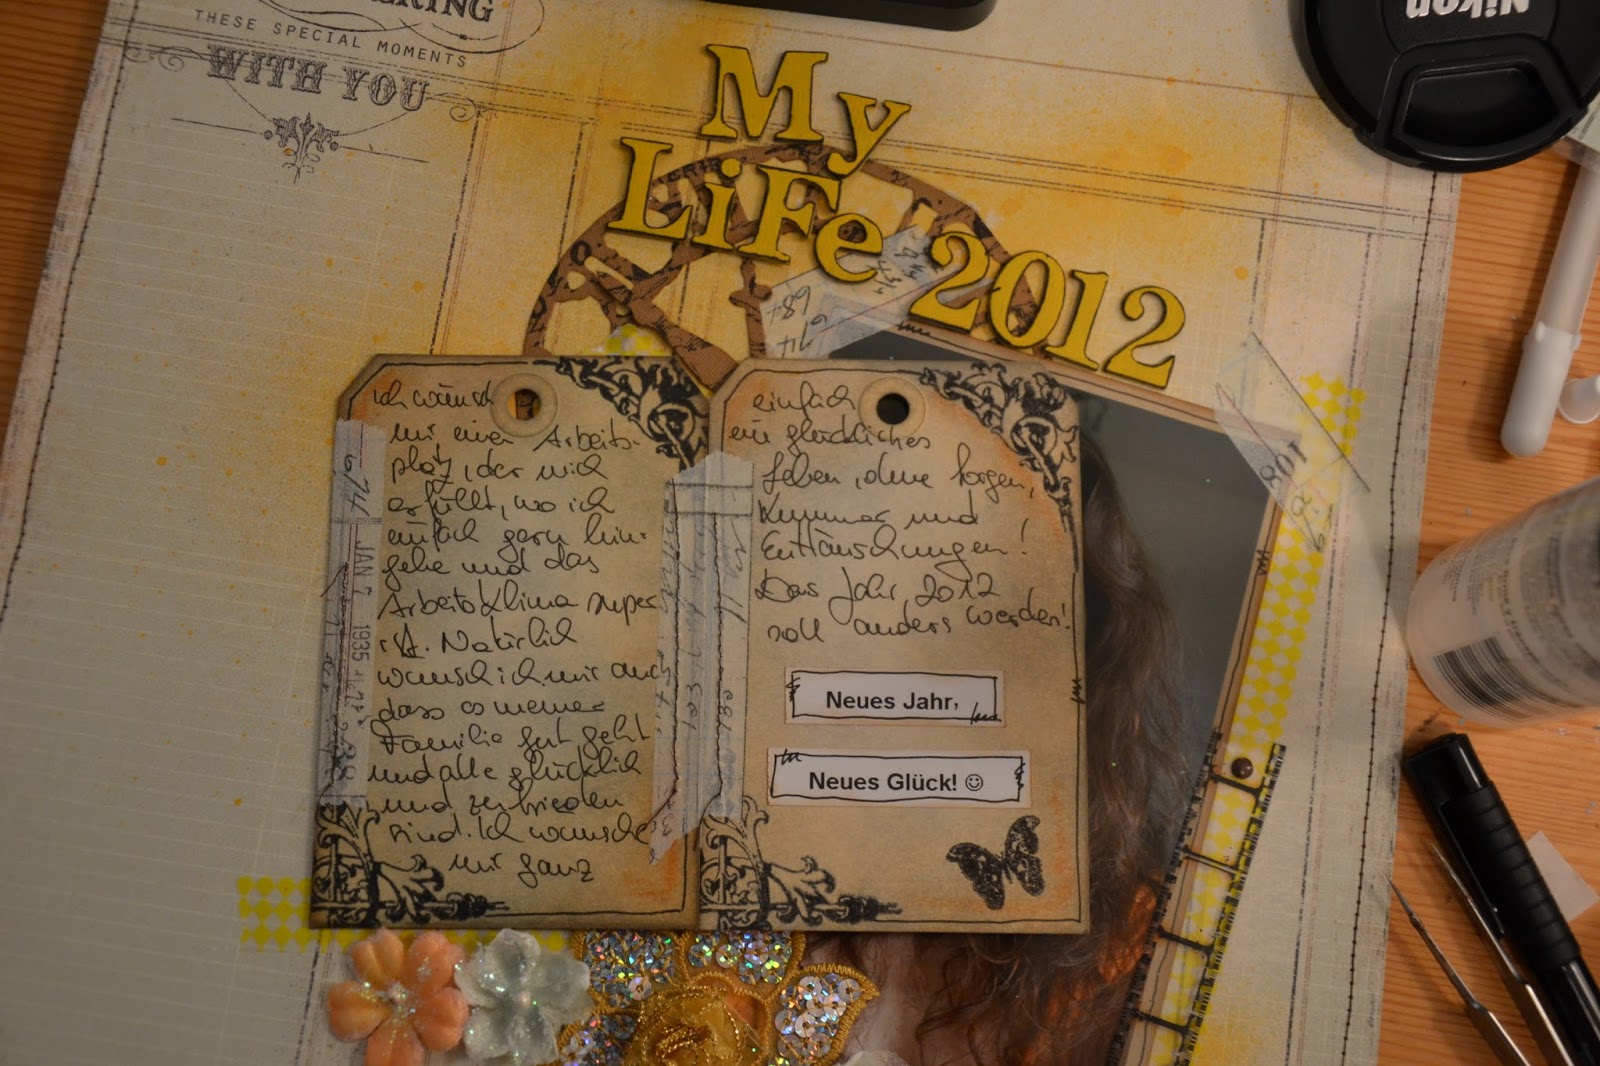 THESE SPECIAL MOMENTS
WITH YOU
Nikon
My
LiFe 2012
ich wünsch
mir einen Arbeits-
platz, der mich
erfüllt, wo ich
einfach gern hin-
gehe und das
Arbeitsklima super
ist. Natürlich
wünsch ich mir auch
dass es meiner
Familie gut geht
und alle glücklich
und zufrieden
sind. Ich wünsche
mir ganz
einfach
ein glückliches
Leben, ohne Sorgen,
Kummer und
Enttäuschungen!
Das Jahr 2012
soll anders werden!
Neues Jahr,
Neues Glück! ☺
674
JAN 7 1935
684
108